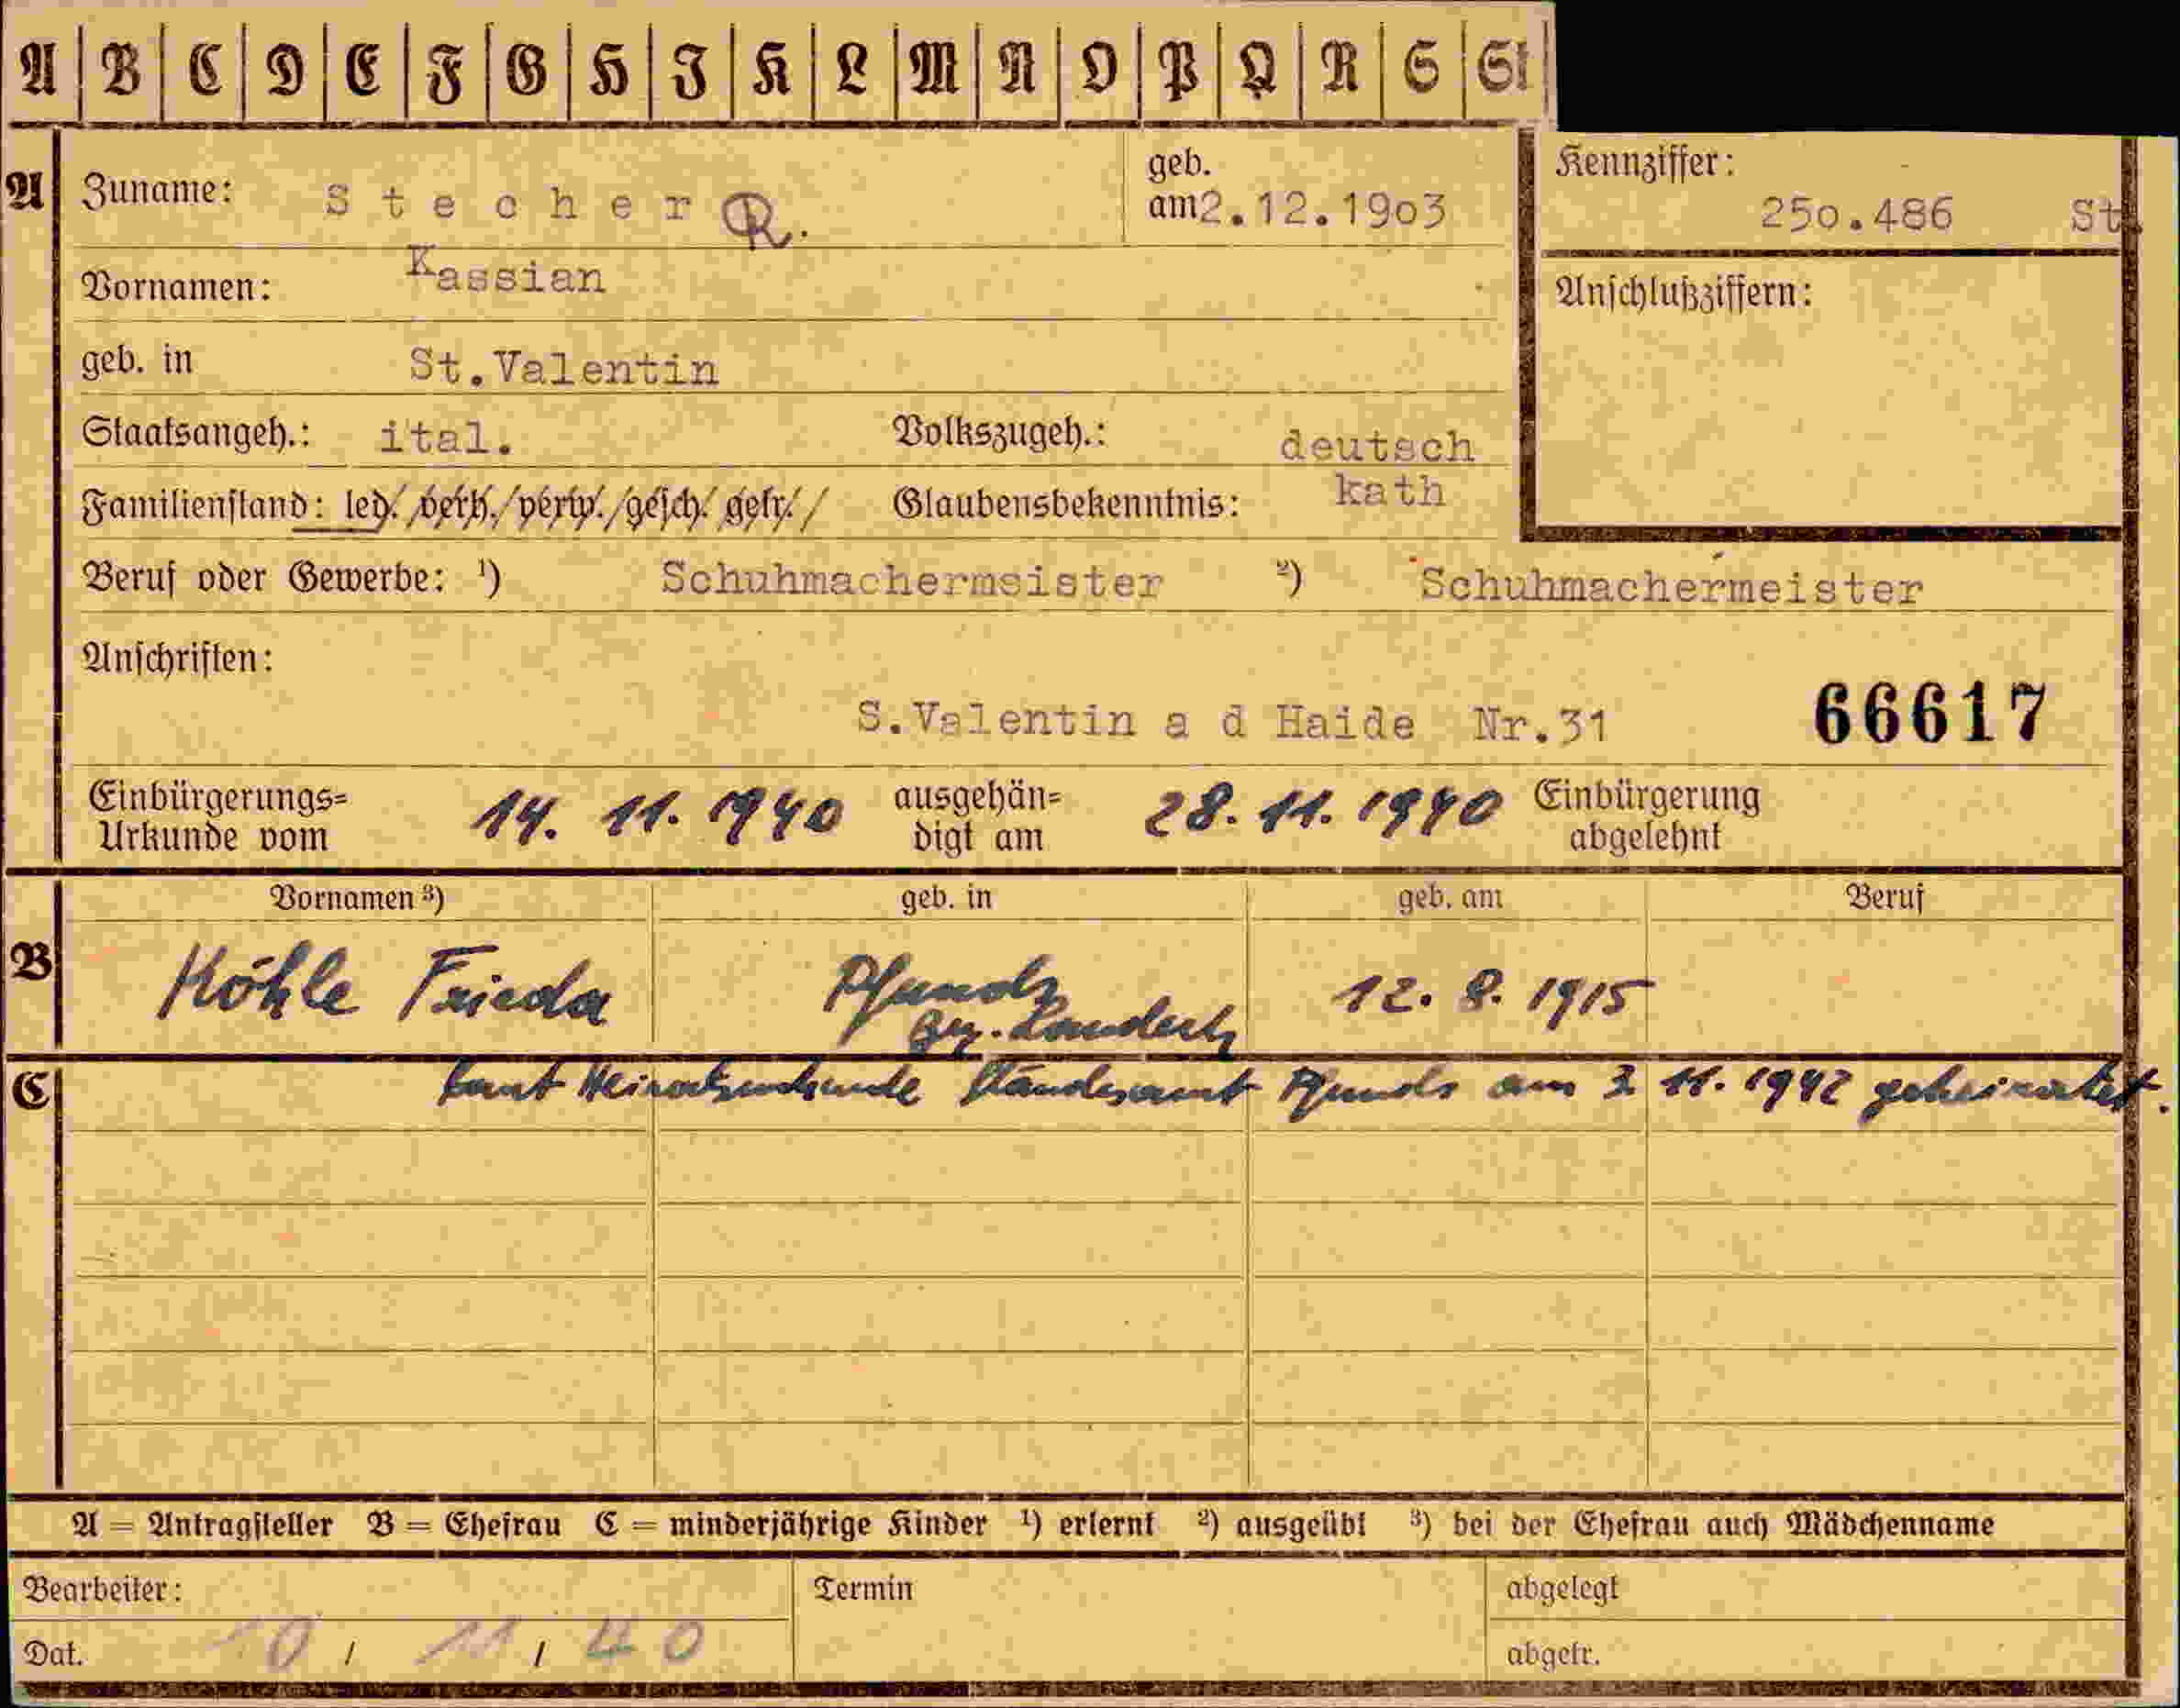 A B C D E F G H I K L M N O P Q R S St
A Zuname: Stecher R. geb. am 2.12.1903 Kennziffer: 250.486 St.
Vornamen: Kassian Anschlußziffern:
geb. in St.Valentin
Staatsangeh.: ital. Volkszugeh.: deutsch
Familienstand: led./verh./verw./gesch./getr./ Glaubensbekenntnis: kath
Beruf oder Gewerbe: ¹) Schuhmachermeister ²) Schuhmachermeister
Anschriften:
S.Valentin a d Haide Nr.31 66617
Einbürgerungs=
Urkunde vom 14. 11. 1940 ausgehän=
digt am 28. 11. 1940 Einbürgerung
abgelehnt
Vornamen ³) geb. in geb. am Beruf
B Köhle Frieda Pfunds 12. 8. 1915
Bez. Landeck
C laut Heiratsurkunde Standesamt Pfunds am 3. 11. 1942 geheiratet.
A = Antragsteller B = Ehefrau C = minderjährige Kinder ¹) erlernt ²) ausgeübt ³) bei der Ehefrau auch Mädchenname
Bearbeiter: Termin abgelegt
Dat. 10 / 11 / 40 abgetr.